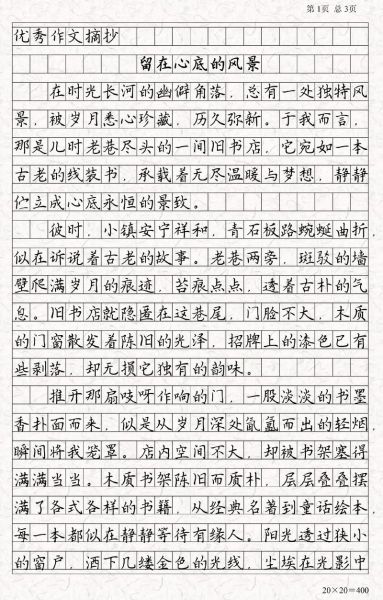 第1页 总3页
优秀作文摘抄
留在心底的风景
在时光长河的幽僻角落，总有一处独特风
景，被岁月悉心珍藏，历久弥新。于我而言，
那是儿时老巷尽头的一间旧书店，它宛如一本
古老的线装书，承载着无尽温暖与梦想，静静
伫立成心底永恒的景致。
彼时，小镇安宁祥和，青石板路蜿蜒曲折，
似在诉说着古老的故事。老巷两旁，斑驳的墙
壁爬满岁月的痕迹，苔痕点点，透着古朴的气
息。旧书店就隐匿在这巷尾，门脸不大，木质
的门窗散发着陈旧的光泽，招牌上的漆色已有
些剥落，却无损它独有的韵味。
推开那扇吱呀作响的门，一股淡淡的书墨
香扑面而来，似是从岁月深处氤氲而出的轻烟，
瞬间将我笼罩。店内空间不大，却被书架塞得
满满当当。木质书架陈旧而质朴，层层叠叠摆
满了各式各样的书籍，从经典名著到童话绘本，
每一本都似在静静等待有缘人。阳光透过狭小
的窗户，洒下几缕金色的光线，尘埃在光影中
20×20=400